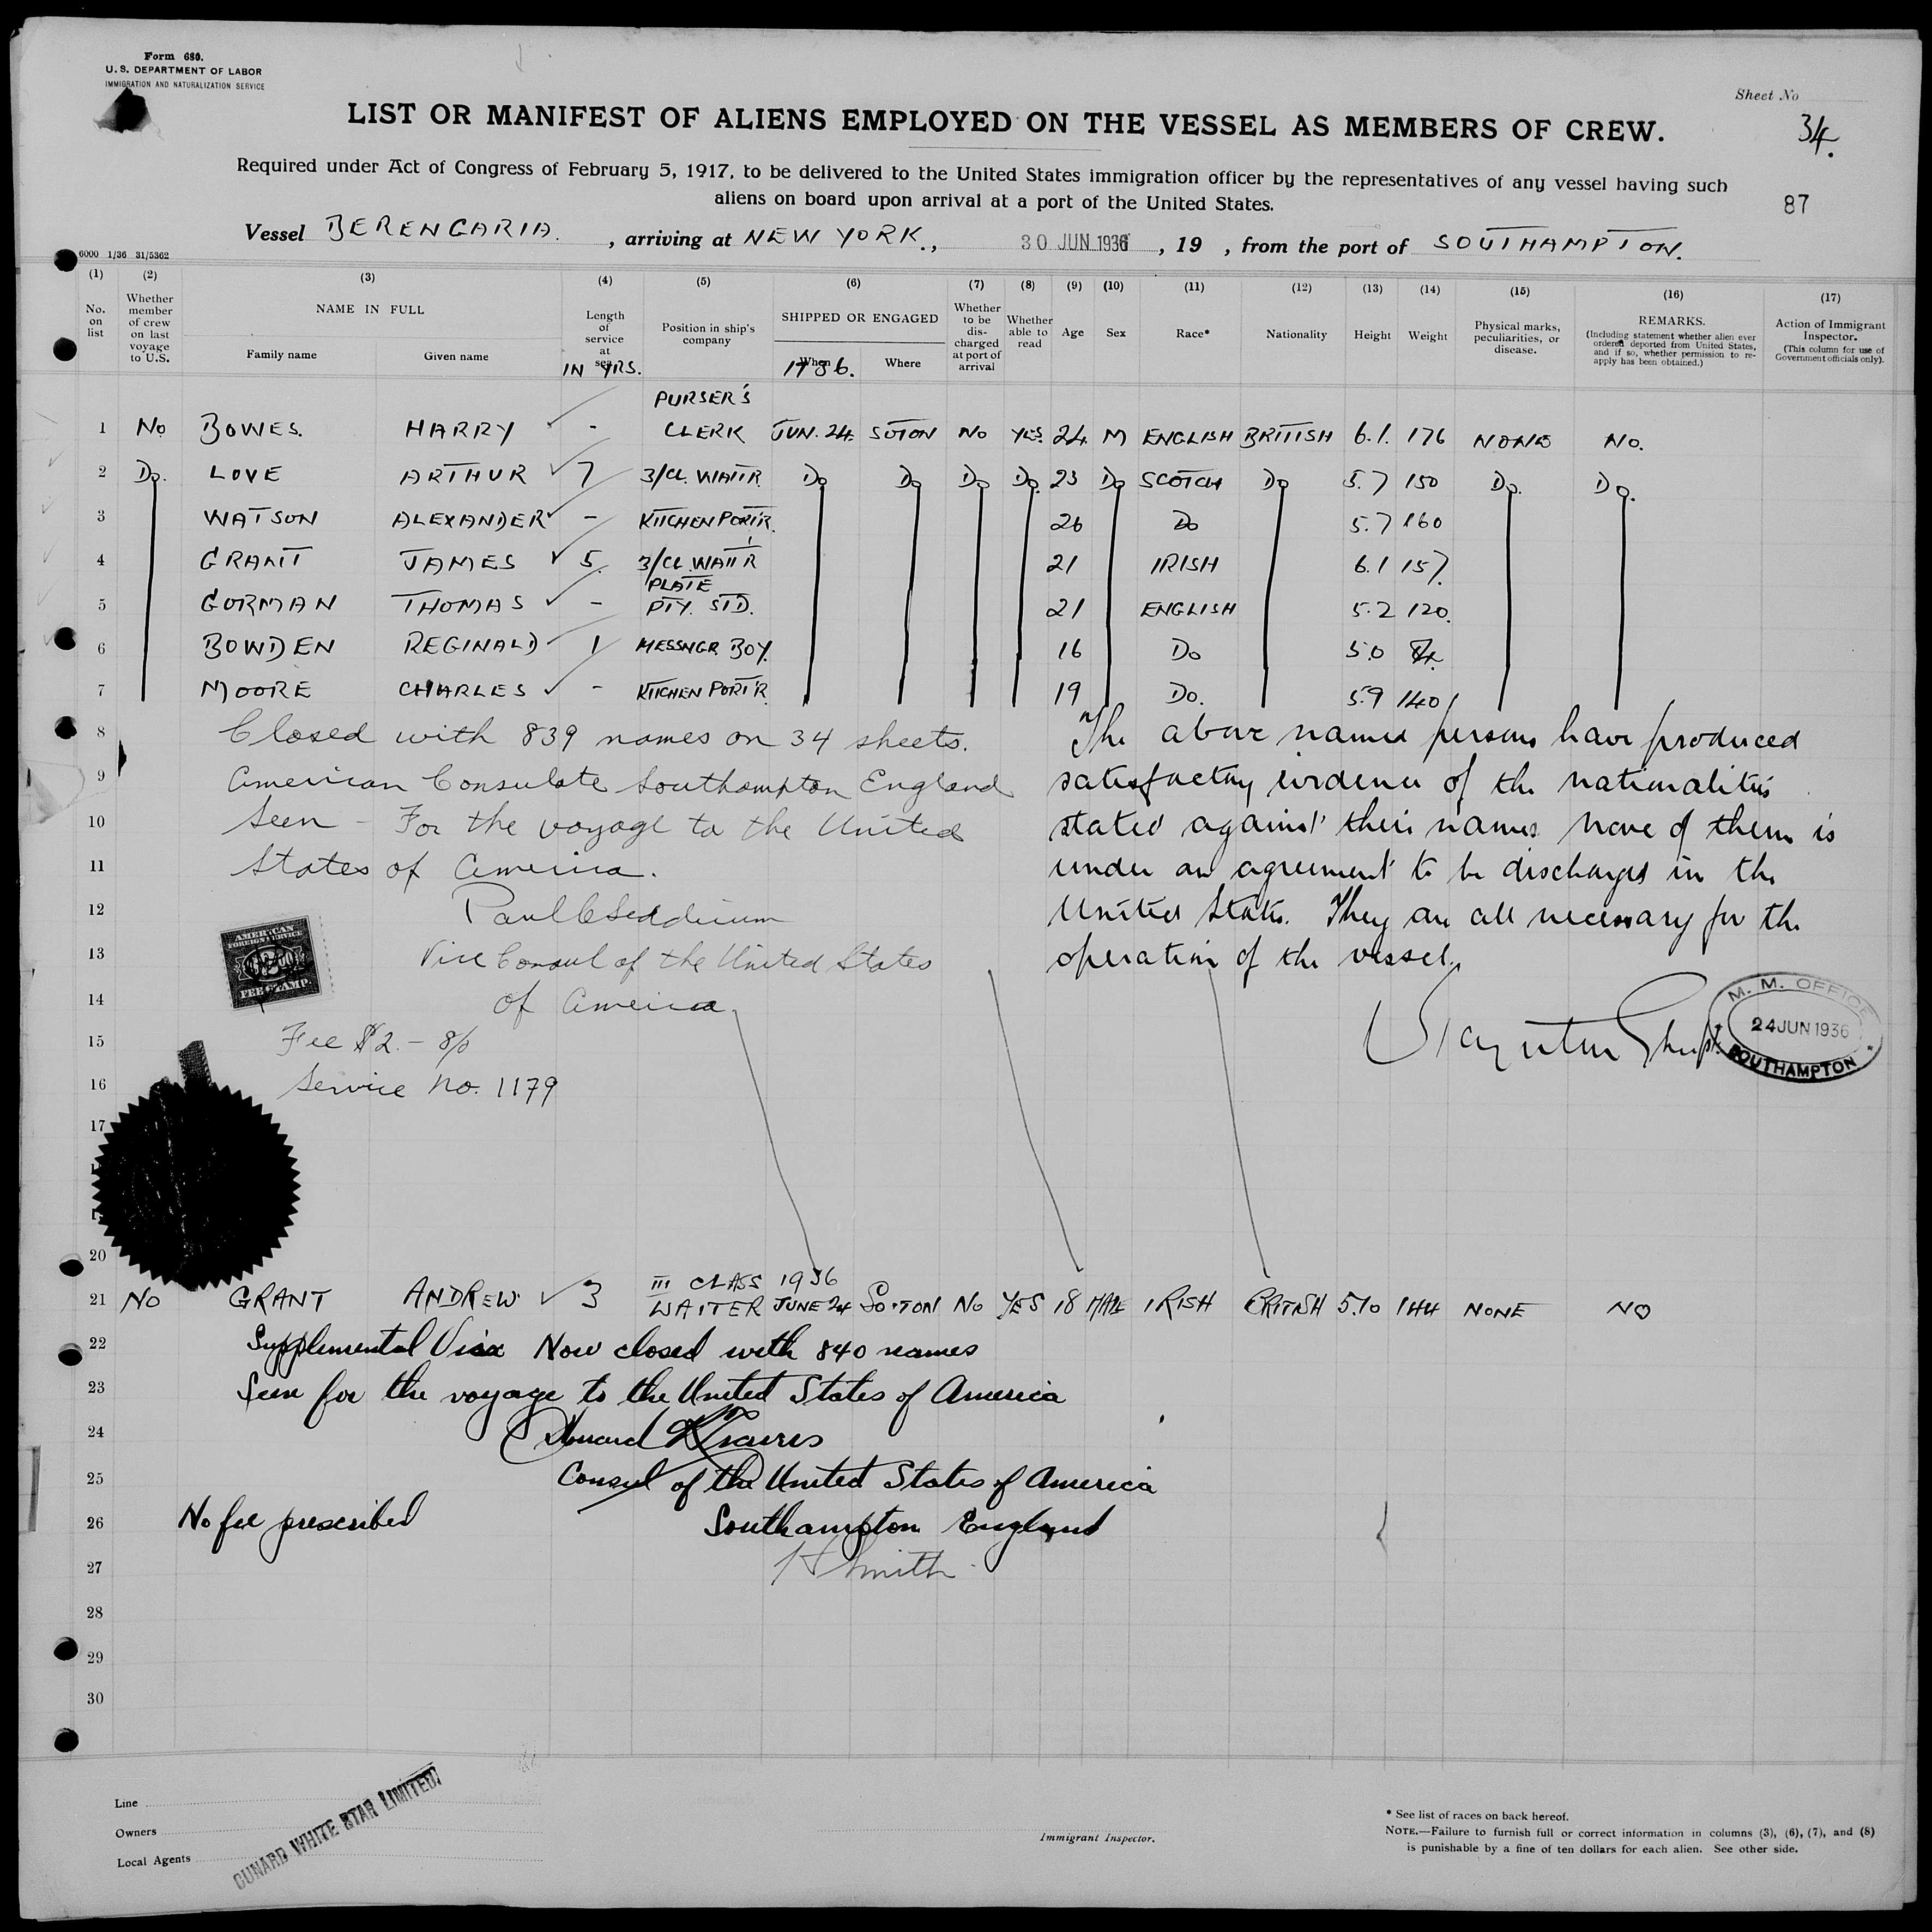 Form 680.
U. S. DEPARTMENT OF LABOR
IMMIGRATION AND NATURALIZATION SERVICE
Sheet No
34.
LIST OR MANIFEST OF ALIENS EMPLOYED ON THE VESSEL AS MEMBERS OF CREW.
Required under Act of Congress of February 5, 1917, to be delivered to the United States immigration officer by the representatives of any vessel having such
aliens on board upon arrival at a port of the United States.
87
Vessel BERENGARIA. , arriving at NEW YORK., 30 JUN 1936 , 19 , from the port of SOUTHAMPTON.
6000 1/36 31/5362
(1) No. on list
(2) Whether member of crew on last voyage to U.S.
(3) NAME IN FULL
Family name Given name
(4) Length of service at sea
IN YRS.
(5) Position in ship's company
(6) SHIPPED OR ENGAGED
When Where
1936.
(7) Whether to be discharged at port of arrival
(8) Whether able to read
(9) Age
(10) Sex
(11) Race*
(12) Nationality
(13) Height
(14) Weight
(15) Physical marks, peculiarities, or disease.
(16) REMARKS.
(Including statement whether alien ever ordered deported from United States, and if so, whether permission to re-apply has been obtained.)
(17) Action of Immigrant Inspector.
(This column for use of Government officials only).
PURSER'S
1 No BOWES. HARRY - CLERK JUN. 24. SOTON NO YES. 24. M ENGLISH BRITISH 6.1. 176 NONE NO.
2 Do. LOVE ARTHUR 7 3/CL. WAIT'R. Do Do Do Do. 23 Do SCOTCH Do 5.7 150 Do. Do.
3 WATSON ALEXANDER - KITCHEN PORT'R. 26 Do 5.7 160
4 GRANT JAMES 5. 3/CL. WAIT'R 21 IRISH 6.1 157.
PLATE
5 GORMAN THOMAS - PTY. STD. 21 ENGLISH 5.2 120.
6 BOWDEN REGINALD 1 MESSNGR. BOY. 16 Do 5.0 84.
7 MOORE CHARLES - KITCHEN PORT'R. 19 Do. 5.9 140
8 Closed with 839 names on 34 sheets. The above named persons have produced
9 American Consulate Southampton England satisfactory evidence of the nationalities
10 Seen - For the voyage to the United stated against their names. None of them is
11 States of America. under an agreement to be discharged in the
12 United States. They are all necessary for the
13 Vice Consul of the United States operation of the vessel.
AMERICAN
FOREIGN SERVICE
FEE STAMP.
14 of America
M. M. OFFICE
24 JUN 1936
SOUTHAMPTON
15 Fee $2. - 8/-
16 Service No. 1179
17
20
III CLASS 1936
21 No GRANT ANDREW 3 WAITER JUNE 24 So'TON No YES 18 MALE IRISH BRITISH 5.10 144 NONE NO
22 Supplemental Visa Now closed with 840 names
23 Seen for the voyage to the United States of America
24
25 Consul of the United States of America
26 No fee prescribed Southampton England
27 Smith
28
29
30
Line
Owners
Local Agents
CUNARD WHITE STAR LIMITED.
Immigrant Inspector.
* See list of races on back hereof.
NOTE.—Failure to furnish full or correct information in columns (3), (6), (7), and (8)
is punishable by a fine of ten dollars for each alien. See other side.